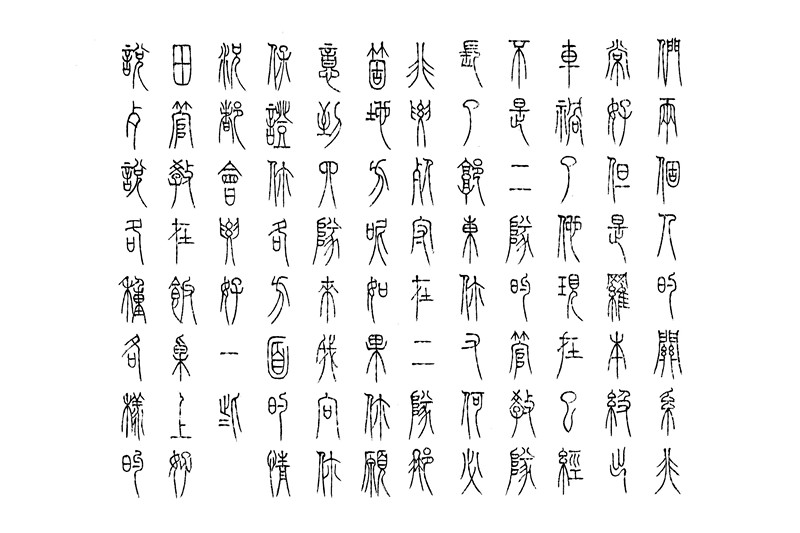 們兩個人的關系非
常好但是羅本出
車禍了他現在已經
不是二隊的管教隊
長了郭東你又何必
非要死守在二隊那
箇地方呢如果你願
意到四隊來我向你
保證你各方面的情
況都會要好一些
田管教在飯桌上好
說歹說各種各樣的